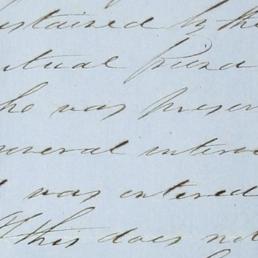 stained by the
utual friend
ho was presen
everal intervi
was entered
If this does not